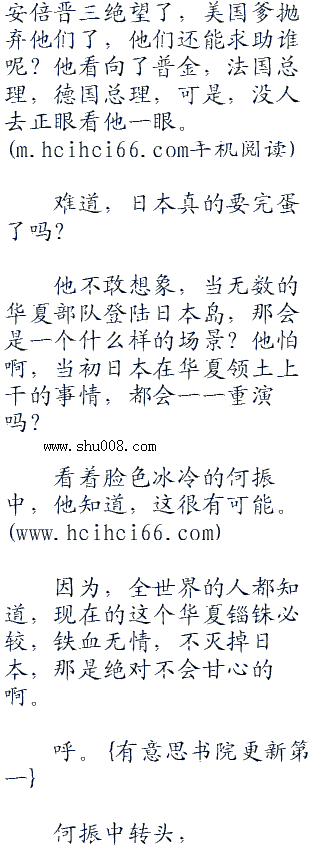 安倍晋三绝望了，美国爹抛
弃他们了，他们还能求助谁
呢？他看向了普金，法国总
理，德国总理，可是，没人
去正眼看他一眼。
(m.hcihci66.com手机阅读)
难道，日本真的要完蛋
了吗？
他不敢想象，当无数的
华夏部队登陆日本岛，那会
是一个什么样的场景？他怕
啊，当初日本在华夏领土上
干的事情，都会一一重演
吗？
www.shu008.com
看着脸色冰冷的何振
中，他知道，这很有可能。
(www.hcihci66.com)
因为，全世界的人都知
道，现在的这个华夏锱铢必
较，铁血无情，不灭掉日
本，那是绝对不会甘心的
啊。
呼。{有意思书院更新第
一}
何振中转头，